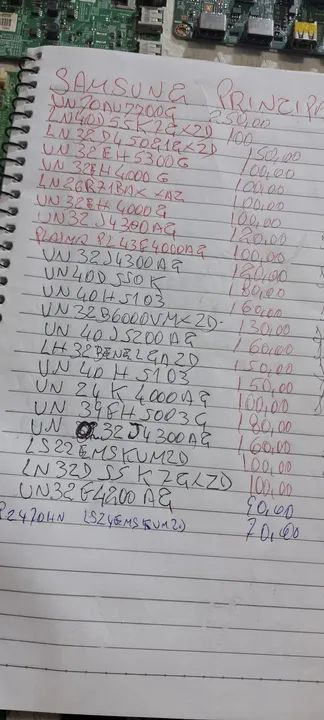 SAMSUNG PRINCIPA
UN70AU7700G 250,00
LN40D55K7GXZD 100
LN32D450G1GXZD 150,00
UN32EH5300G 100,00
UN32EH4000G 100,00
LN26R71BAX XAZ 100,00
UN32EH4000G 100,00
UN32J4300AG 120,00
PLASMA PL43E4000AG 100,00
UN32J4300AG 120,00
UN40D550K 180,00
UN40H5103 160,00
UN32B6000VMXZD 130,00
UN40J5200AG 160,00
LH32BENELGAZD 150,00
UN40H5103 150,00
UN24K4000AG 100,00
UN39EH5003G 180,00
UN 32J4300AG 160,00
LS22EMSKUMZD 100,00
LN32D55K7GXZD 100,00
UN32E4200AG 90,00
P2470HN LS24EMSKUMZD 70,00